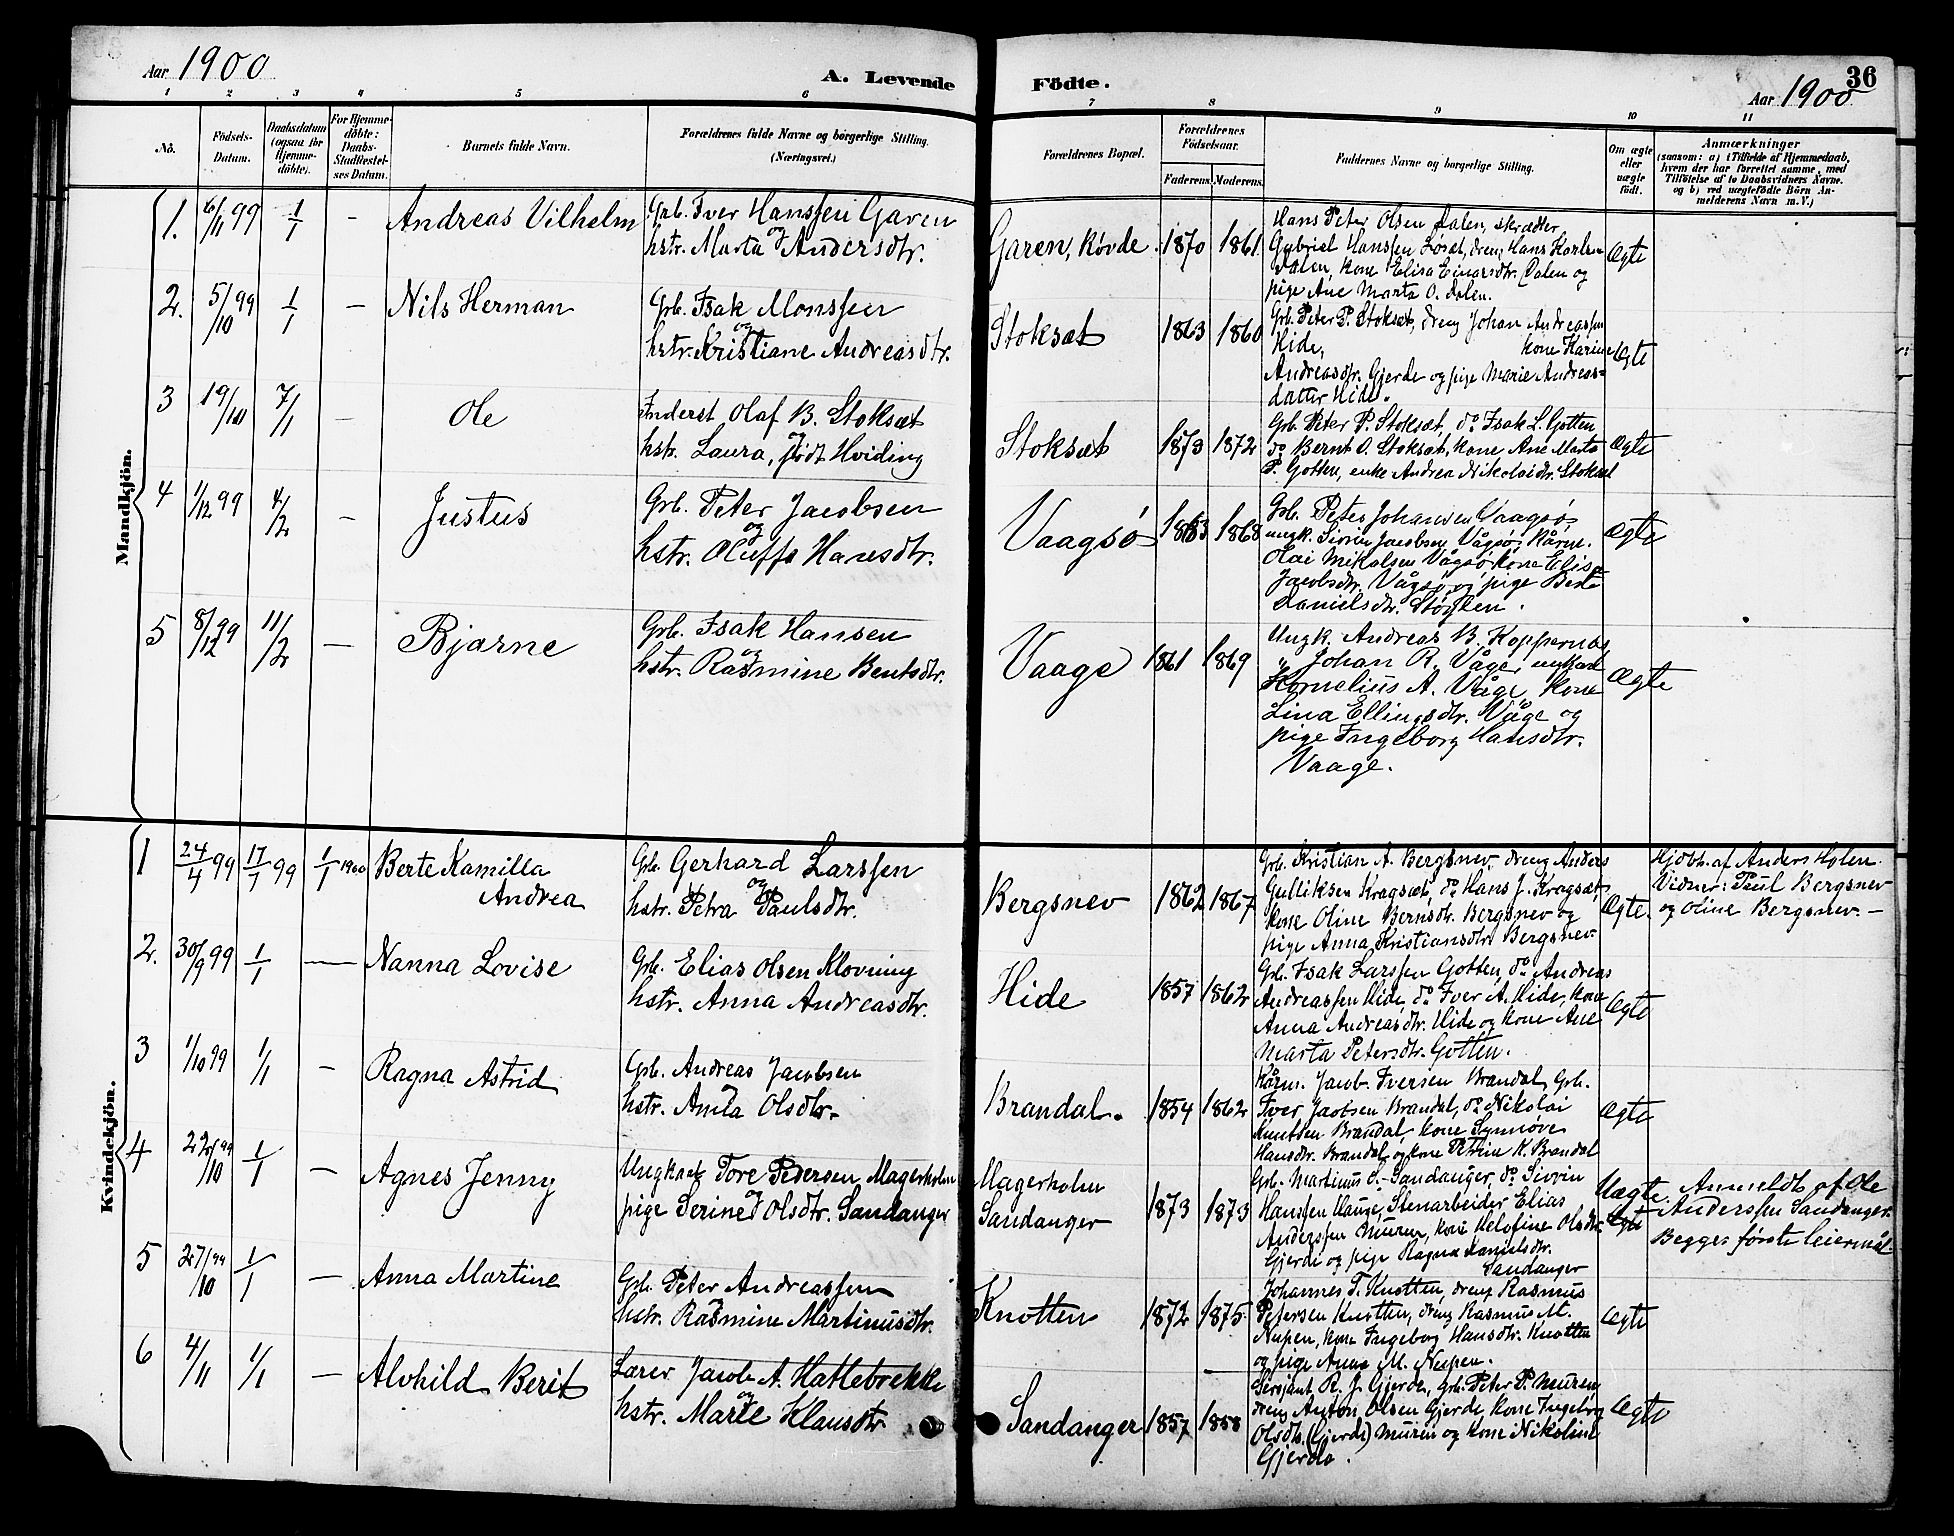 Aar 1900
A. Levende
Födte.
36
Aar 1900
1 2 3 4 5 6 7 8 9 10 11
No.
Födsels-
Datum.
Daabsdatum
(ogsaa for
Hjemme-
döbte).
For Hjemme-
döbte:
Daabs-
Stadfæstel-
ses Datum.
Barnets fulde Navn.
Forældrenes fulde Navne og borgerlige Stilling.
(Næringsvei.)
Forældrenes Bopæl.
Forældrenes
Födselsaar.
Faderens.
Moderens.
Faddernes Navne og borgerlige Stilling.
Om ægte
eller
uægte
födt.
Anmærkninger
(saasom: a) i Tilfælde af Hjemmedaab,
hvem der har forrettet samme, med
Tilföielse af to Daabsvidners Navne.
og b) ved uægtefödte Börn An-
melderens Navn m.V.)
Mandkjön.
1. 6/11 99 1/1 - Andreas Vilhelm
Grb. Iver Hanssen Garen
og
hstr. Marta Andersdtr.
Garen, Rovde 1870 1861
Hans Peter Olsen Dalen, skrædder
Gabriel Hanssen Loset, dreng Hans Karlsen
Dalen, kone Elisa Einarsdtr. Dalen og
pige Ane Marta O. Dalen.
Ægte
2. 5/10 99 1/1 - Nils Herman
Grb. Isak Monssen
og
hstr. Kristiane Andreasdtr.
Stoksæt 1863 1860
Grb. Peter P. Stoksæt, dreng Johan Andreassen
Hide, kone Karine
Andreasdtr. Gjerde og pige Marie Andreas-
datter Hide.
Ægte
3 19/10 7/1 - Ole
Inderst Olaf B. Stoksæt
og
hstr. Laura, født Hviding
Stoksæt 1873 1872
Grb. Peter P. Stoksæt, do Isak L. Gotten
do Bernt O. Stoksæt, kone Ane Marta
P. Gotten, enke Andrea Nikolaidtr. Stoksæt
Ægte
4 1/12 99 4/2 - Justus
Grb. Peter Jacobsen
og
hstr. Oluffa Hansdtr.
Vaagsø 1868
Grb. Peter Johansen Vaagsø,
ungk. Sivrin Jacobsen Vågsø, Kårm.
Olai Mikalsen Vågsø kone Elise
Jacobsdtr. Vågsø og pige Berte
Danielsdtr. Støylen.
Ægte
5 8/12 99 11/2 - Bjarne
Grb. Isak Hansen
og
hstr. Rasmine Bentsdtr.
Vaage 1861 1869
Ungk. Andreas B. Koppernæs
" Johan R. Våge, ungkarl
Kornelius A. Våge, kone
Lina Ellingsdtr. Våge og
pige Ingeborg Hansdtr.
Vaage.
Ægte
Kvindekjön.
1 24/4 99 17/7 99 1/1 1900 Berte Kamilla
Andrea
Grb. Gerhard Larssen
og
hstr. Petra Paulsdtr.
Bergsnev 1862 1867
Grb. Kristian A. Bergsnev, dreng Anders
Gulliksen Kragsæt, do Hans J. Kragsæt,
kone Oline Berntsdtr. Bergsnev og
pige Anna Kristiansdtr. Bergsnev.
Ægte.
Hjdbt. af Anders Holen.
Vidner: Paul Bergsnev
og Oline Bergsnev. -
2. 30/9 99 1/1 - Nanna Lovise
Grb. Elias Olsen Klovning
hstr. Anna Andreasdtr.
Hide 1857 1862
Grb. Isak Larssen Gotten, do Andreas
Andreassen Hide, do Iver A. Hide, kone
Anna Andreasdtr. Hide og kone Ane
Marta Petersdtr. Gotten.
Ægte
3 1/10 99 1/1 - Ragna Astrid
Grb. Andreas Jacobsen
hstr. Anna Olsdtr.
Brandal. 1854 1862
Kårm. Jacob Iversen Brandal, Grb.
Iver Jacobsen Brandal, do Nikolai
Knutsen Brandal, kone Synnøve
Hansdtr. Brandal og kone Petrine K. Brandal
Ægte
4 22/10 99 1/1 - Agnes Jenny
Ungkarl Tore Pedersen Magerholm
og
pige Serine Olsdtr. Sandanger
Magerholm
Sandanger 1873 1873
Grb. Martinus O. Sandanger, do Sivrin
Hanssen Hauge, Stenarbeider Elias
Anderssen Muren, kone Olsdtr.
Gjerde og pige Ragna Danielsdtr.
Sandanger
Uægte
Anmeldt af Ole
Anderssen Sandanger.
Begges første leiermål.
5 27/10 99 1/1 - Anna Martine
Grb. Peter Andreassen
og
hstr. Rasmine Martinusdtr.
Knotten 1872 1875
Johannes T. Knotten, dreng Rasmus
Petersen Knotten, dreng Rasmus M.
Nupen, kone Ingeborg Hansdtr. Knotten
og pige Anna M. Nupen.
Ægte
6 4/11 1/1 - Alvhild Berit
Lærer Jacob A. Hattebrekke
og
hstr. Marie Klausdtr.
Sandanger 1857 1858
Sersjant R. J. Gjerde, grb. Peter P. Muren,
dreng Anton Olsen Gjerde kone Ingeborg
Olsdtr. (Gjerde) Muren og kone Nikoline
Gjerde.
Ægte